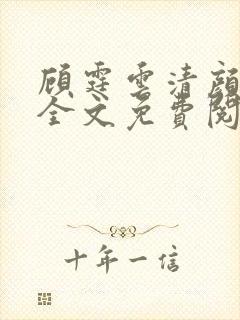 顧霆雲清顏
全文免費閱
十年一信